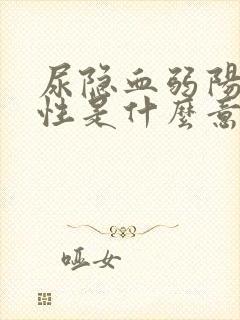 尿隐血弱陽
性是什麼意
哑女